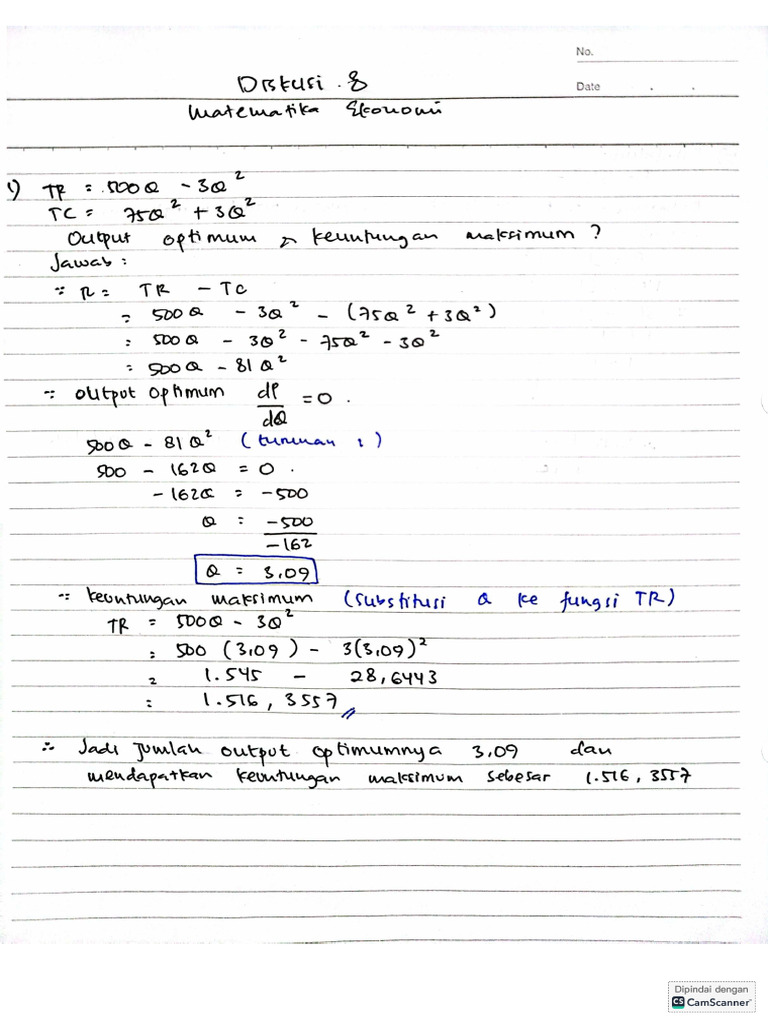 No.
Date . .
Diskusi . 8
Matematika Ekonomi
1) TR = 500Q - 3Q²
TC = 75Q² + 3Q²
Output optimum & keuntungan maksimum ?
Jawab :
∵ π = TR - TC
= 500Q - 3Q² - (75Q² + 3Q²)
= 500Q - 3Q² - 75Q² - 3Q²
= 500Q - 81Q²
∵ output optimum dP/dQ = 0 .
500Q - 81Q² (turunan 1)
500 - 162Q = 0 .
- 162Q = -500
Q = -500
-162
Q = 3,09
∵ keuntungan maksimum (substitusi Q ke fungsi TR)
TR = 500Q - 3Q²
= 500 (3,09) - 3(3,09)²
= 1.545 - 28,6443
= 1.516,3557 //
∴ Jadi Jumlah output optimumnya 3,09 dan
mendapatkan keuntungan maksimum sebesar 1.516,3557
Dipindai dengan
CS CamScanner